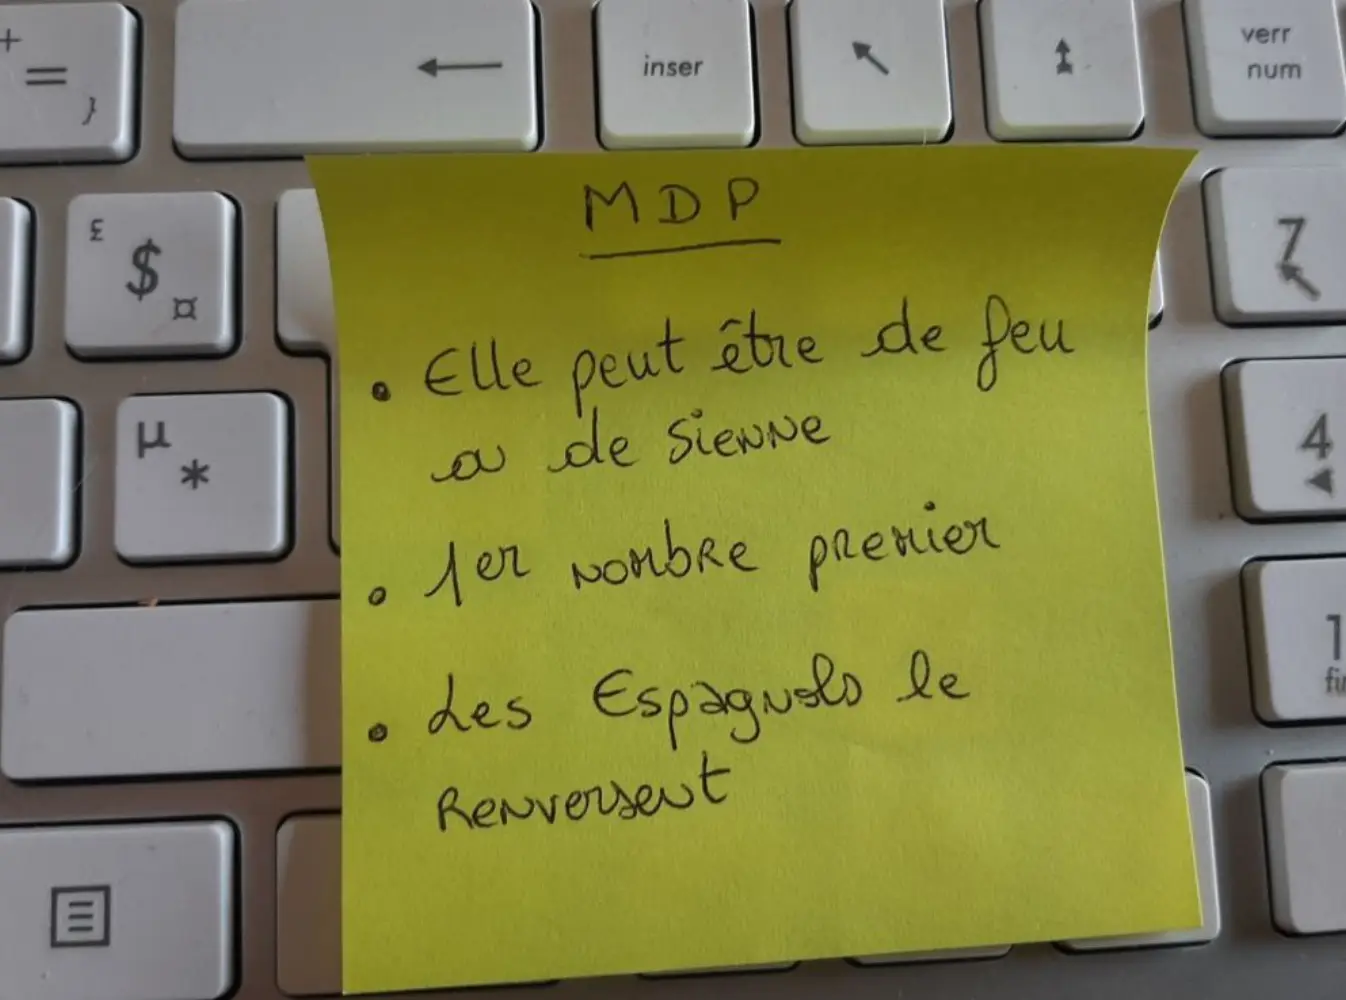 +
=
}
←
inser
↖
verr
num
£
$
¤
7
↖
µ
*
4
◄
1
MDP
• Elle peut être de feu
ou de Sienne
• 1er nombre premier
• Les Espagnols le
Renversent